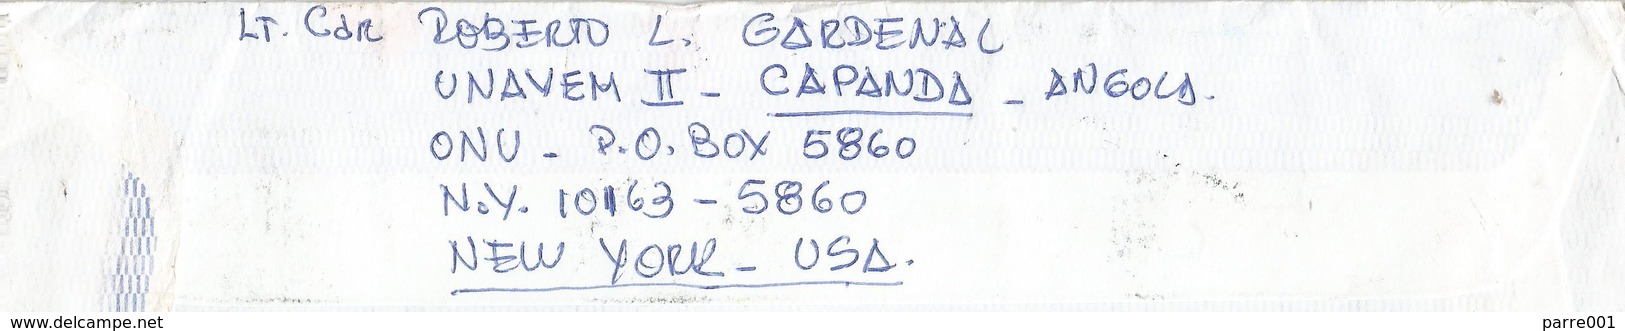 LT. CdR ROBERTO L. GARDENAL
UNAVEM II - CAPANDA - ANGOLA.
ONU - P.O. BOX 5860
N.Y. 10163 - 5860
NEW YORK - USA.
www.delcampe.net
parre001